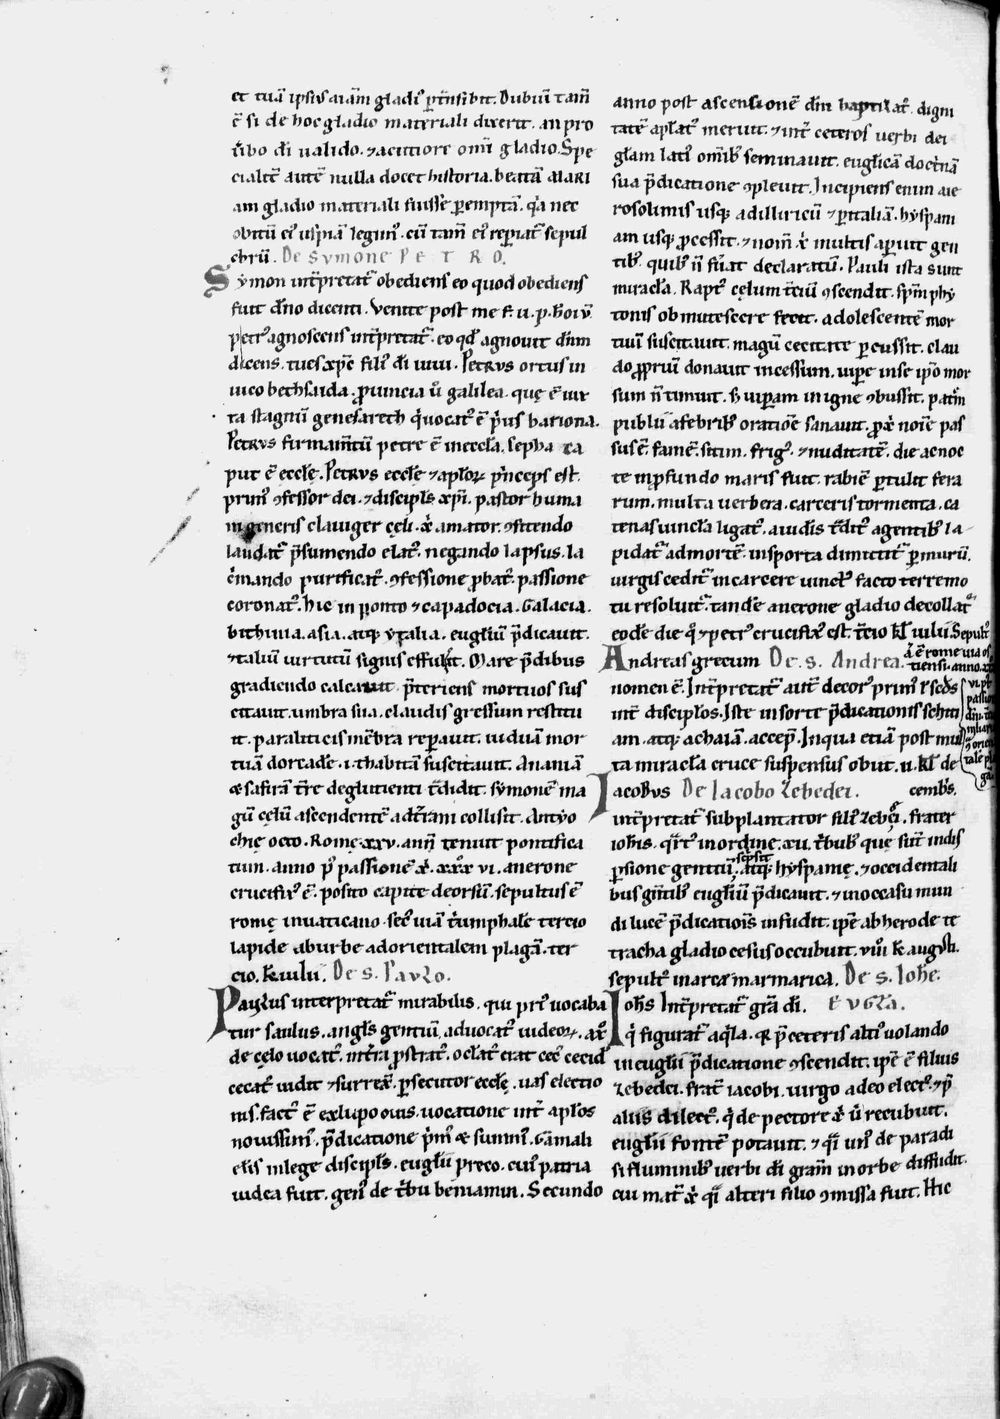 et tuā ipsius aīam gladiꝰ ꝑt̄nsibit. Dubiū tam̄
ē si de hoc gladio materiali dixerit. an pro
ūbo dī ualido. ⁊ acutiore om̄i gladio. Spe
cialit̄ autē nulla docet historia. beatā MARI
am gladio materiali fuisse ꝑemptā. q̄a nec
obitū eiꝰ uspiā legimꝰ. cū tam̄ eiꝰ reꝑiat̄ sepul
chrū. De Symone PETRO.
Symon int̄pretat̄ obediens eo quod obediens
fuit dn̄o dicenti. Venite post me f. u. p. hoiū
petrꝰ agnoscens int̄pretat̄. eo qd̓ agnouit dn̄m
dicens. tu es xp̄c filiꝰ dī uiui. Petrus ortus in
uico bethsaida. ꝓuincia ū galilea. quę ē iux
ta stagnū genesareth q̄ uocatꝰ ē p̄us bariona.
Petrus firmam̄tū petre ē in eccl̄a. sepha ca
put ē eccl̄ę. Petrus eccl̄ę ⁊ apl̄oꝝ p̄nceps est.
primꝰ ꝯfessor dei. ⁊ discipl̄s xp̄i. pastor huma
ni generis clauiger cęli. x̄ amator. ꝯfitendo
laudat̄ p̄sumendo elatꝰ. negando lapsus. la
c̄mando purificatꝰ. ꝯfessione ꝓbatꝰ. passione
coronatꝰ. hic in ponto ⁊ capadocia. Galacia.
bithinia. asia. atqꝫ ytalia. eugl̄iū p̄dicauit.
⁊ taliū uirtutū signis effulsit. Mare p̄dibus
gradiendo calcauit. p̄teriens mortuos sus
citauit. umbra sua. claudis gressum restitu
it. paraliticis mēbra reꝑauit. uiduam mor
tuā dorcade. i. thabitā suscitauit. Ananiā
⁊ safirā t̄re deglutienti t̄didit. symonē ma
gū cęlū ascendentē ad t̄ram collisit. Antyo
chię octo. Romę. xxv. anī tenuit pontifica
tum. anno pꝰ passionē x̄. xxxͦ vi. a nerone
crucifixꝰ ē. posito capite deorsū. sepultus ē
romę in uaticano. sec̄ uiā t̄umphale tercio
lapide ab urbe ad orientalem plagā. ter
cio. kł iulii. De s. Paulo.
Paulus interpretat̄ mirabilis. qui priꝰ uocaba
tur saulus. angl̄s gentiū, aduocatꝰ iudeoꝝ. a x̄
de cęlo uocatꝰ. in t̄ra ꝓstratꝰ. oc̄latꝰ erat cec̄ cecid̓
cecatꝰ uidit ⁊ surrex̄. ꝑsecutor eccl̄ę. uas electio
nis. factꝰ ē ex lupo ouis. uocatione int̄ apl̄os
nouissimꝰ. p̄dicatione p̄mꝰ ⁊ summꝰ. Gamali
elis in lege discipl̄s. eugl̄ii preco. cuiꝰ patria
iudea fuit. genꝰ de t̄bu beniamin. Secundo
anno post ascensionē dn̄i baptizatꝰ. digni
tatē apl̄atꝰ meruit. ⁊ int̄ ceteros uerbi dei
gl̄am latiꝰ om̄ibꝰ seminauit. eugl̄icā doct̄nā
sua p̄dicatione ꝯpleuit. Incipiens enim a ie
rosolimis usqꝫ ad illiricū ⁊ ꝑ italiā. hyspani
am usqꝫ ꝓcessit. ⁊ nom̄ x̄ multis aꝑuit gen
tibꝰ. quibꝰ n̄ fūat declaratū. Pauli ista sunt
miracl̄a. Raptꝰ cęlum t̄ciū ꝯscendit. spm̄ phy
tonis obmutescere fecit. adolescentē mor
tuū suscitauit. magū cecitate ꝑcussit. clau
do ꝓpriū donauit incessum. uiꝑe in se ip̄o mor
sum n̄ timuit. s̄ uiꝑam in igne ꝯbussit. patrē
publii a febribꝰ oratione sanauit. ꝓ x̄ noīe pas
sus ē. famē. sitim. frigꝰ. ⁊ nuditatē. die ac noc
te in ꝓfundo maris fuit. rabiē ꝑtulit fera
rum. multa uerbera. carceris tormenta. ca
tenas uincl̄a ligatꝰ. a iudis t̄dit̄ agentibꝰ la-
pidat̄ ad mortē. in sporta dimittit̄ ꝑ murū.
uirgis cedit̄ in carcere uinctꝰ. facto terremo
tu resoluit̄. tandē a nerone gladio decollat̄
eodē die qͦ ⁊ petrꝰ crucifixꝰ est. t̄cio kł iulii. Sepultꝰ
Andreas grecum De. s. Andrea. ā ē rome uia os
tiensi. anno. xx
vi. pꝰ
passio
nomen ē. Int̄pretat̄ aut̄ decorꝰ primꝰ r̄ seds̄
int̄ discipl̄os. Iste in sorte p̄dicationis schiti
am. atqꝫ achaiā. accep̄. In qua etiā post mul
ta miracl̄a cruce suspensus obiit. ii. kł de
cembs̄.
Iacobus De Iacobo Zebedei.
int̄pretat̄ subplantator filiꝰ zebēi. frater
iohīs. q̄rtꝰ in ordine. xii. t̄bubꝰ quę sūt in dis
ꝑsione gentiū. scripsit atqꝫ hyspanię. ⁊ occidentali
bus gn̄tibꝰ eugl̄iū p̄dicauit. ⁊ in occasu mun
di lucē p̄dicatiōis infudit. ip̄e ab herode te
tracha gladio cesus occubuit. viii. kł augusti.
sepultꝰ in arca marmarica. De s. Iohē.
Iohs̄ Int̄pretat̄ gr̄a dī. EVGLA.
q̄ figurat̄ aq̄la. q̄ p̄ceteris altiꝰ uolando
in eugl̄ii p̄dicatione ꝯscendit. ip̄e ē filius
zebedei. frat̄ iacobi. uirgo a deo electꝰ. ⁊ p̄
aliis dilectꝰ. q̄ de pectore x̄ ū recubuit.
eugl̄ii fontē potauit. ⁊ q̄i unꝰ de paradi
si fluminibꝰ uerbi dī gram̄ in orbe diffudit.
cui mat̄ x̄ q̄i alteri filio ꝯmissa fuit. Hic